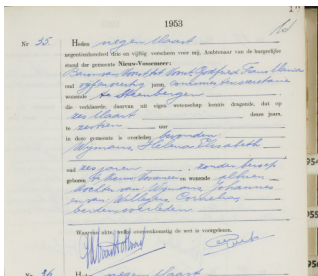 1953
Nr 35.
Heden negen Maart
negentienhonderd drie en vijftig verscheen voor mij, Ambtenaar van de burgerlijke
stand der gemeente Nieuw-Vossemeer:
Baron van Voorst tot Voorst, Godfried Frans Maria
oud vijfenveertig jaren,
wonende te Steenbergen
die verklaarde, daarvan uit eigen wetenschap kennis dragende, dat op
zes Maart dezes jaars,
te zestien uur
in deze gemeente is overleden bevonden
Wijmans, Helena Elisabeth
oud zes jaren, zonder beroep
geboren te Nieuw Vossemeer en wonende alhier
dochter van Wijmans, Johannes
en van Cornelia
beiden overleden
Waarvan akte, welke overeenkomstig de wet is voorgelezen.
Nr 36.
Heden negen Maart